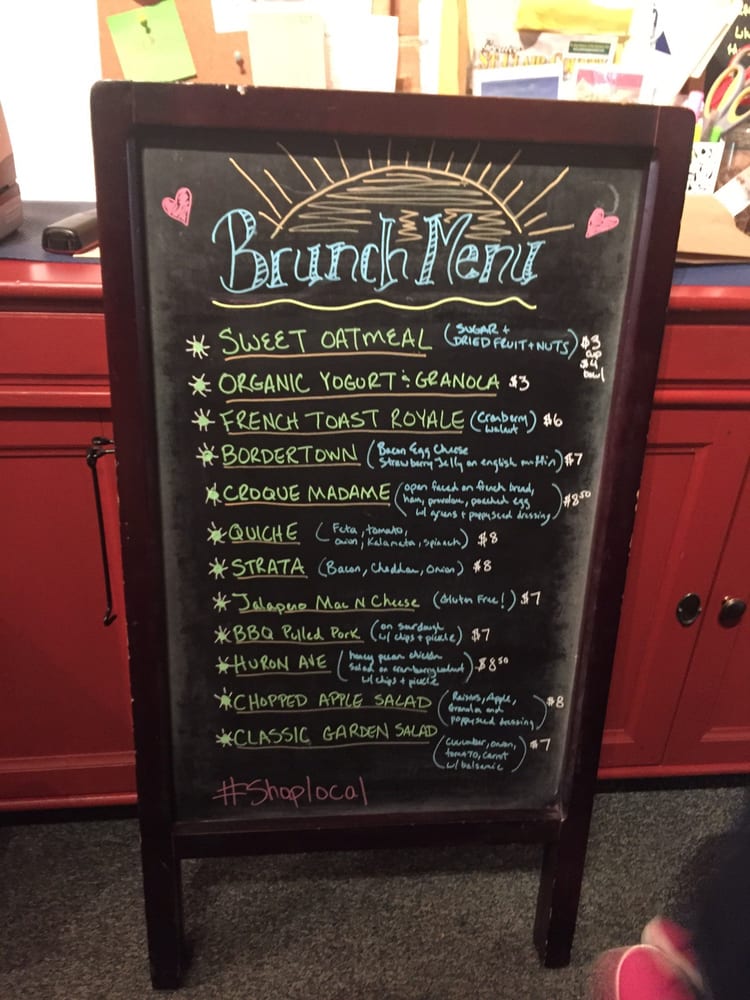 Brunch Menu
SWEET OATMEAL (SUGAR + DRIED FRUIT + NUTS) $3 cup $4 bowl
ORGANIC YOGURT & GRANOLA $3
FRENCH TOAST ROYALE (Cranberry walnut) $6
BORDERTOWN (Bacon Egg Cheese Strawberry Jelly on english muffin) $7
CROQUE MADAME (open faced on french bread, ham, provolone, poached egg w/ greens + poppyseed dressing) $8.50
QUICHE (Feta, tomato, onion, Kalamata, spinach) $8
STRATA (Bacon, Cheddar, Onion) $8
Jalapeno Mac N Cheese (Gluten Free!) $7
BBQ Pulled Pork (on sourdough w/ chips + pickle) $7
HURON AVE (honey pecan chicken salad on cranberry walnut w/ chips + pickle) $8.50
CHOPPED APPLE SALAD (Raisins, Apple, Granola and poppyseed dressing) $8
CLASSIC GARDEN SALAD (cucumber, onion, tomato, carrot w/ balsamic) $7
#Shoplocal